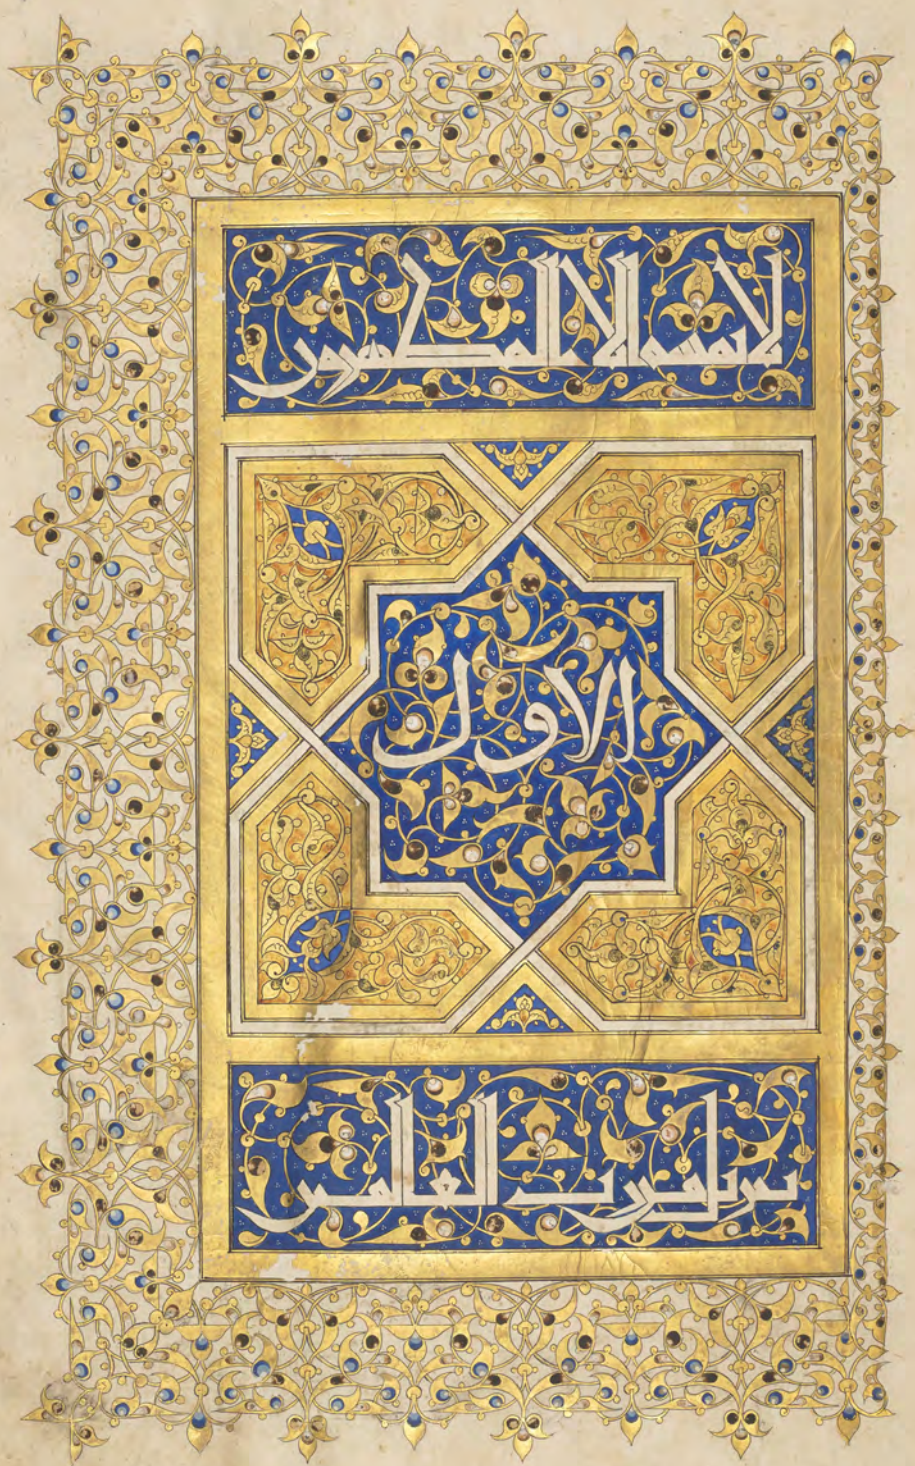 لا يمسه الا المطهرون
الاول
تنزيل من رب العالمين